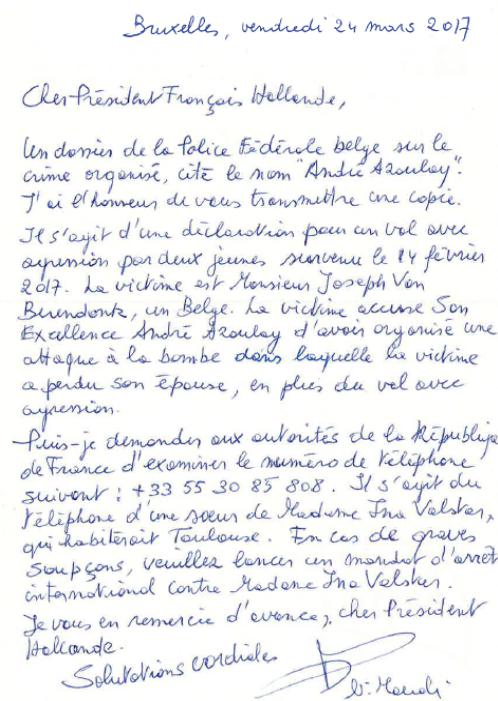 Bruxelles, vendredi 24 mars 2017
Cher Président François Hollande,
Un dossier de la Police Fédérale belge sur le
crime organisé, cite le nom "André Azoulay".
J'ai l'honneur de vous transmettre une copie.
Il s'agit d'une déclaration pour un vol avec
agression par deux jeunes survenu le 14 février
2017. La victime est Monsieur Joseph Van
Berendonk, un Belge. La victime accuse Son
Excellence André Azoulay d'avoir organisé une
attaque à la bombe dans laquelle la victime
a perdu son épouse, en plus du vol avec
agression.
Puis-je demander aux autorités de la République
de France d'examiner le numéro de téléphone
suivant : +33 55 30 85 808. Il s'agit du
téléphone d'une sœur de Madame Ina Valsker,
qui habiterait Toulouse. En cas de graves
soupçons, veuillez lancer un mandat d'arrêt
international contre Madame Ina Valsker.
Je vous en remercie d'avance, cher Président
Hollande.
Salutations cordiales